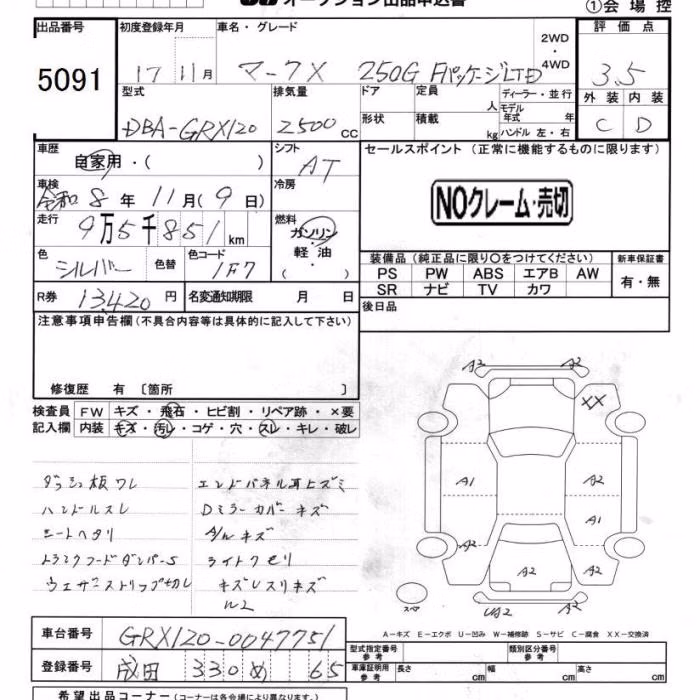 オークション出品申込書
①会場控
出品番号
5091
初度登録年月
17 11月
車名・グレード
マークX 250G Fパッケージ LTD
2WD
・
4WD
評価点
3.5
外装 内装
C D
型式
DBA-GRX120
排気量
2500cc
ドア
形状
定員 人
積載 kg
ディーラー・並行
モデル年式 年
ハンドル 左・右
車歴
自家用・( )
シフト
AT
セールスポイント (正常に機能するものに限ります)
NOクレーム・売切
車検
令和8年11月(9日)
冷房
走行
9万5千851km
燃料
ガソリン
軽油
( )
色
シルバー
色替
色コード
1F7
装備品(純正品に限り○をつけてください)
新車保証書
PS PW ABS エアB AW
SR ナビ TV カワ
有・無
R券 13420円
名変通知期限 月 日
後日品
注意事項申告欄(不具合内容等は具体的に記入して下さい)
修復歴 有〔箇所 〕
検査員記入欄
FW キズ・飛石・ヒビ割・リペア跡・×要
内装 キズ・汚レ・コゲ・穴・スレ・キレ・破レ
ダッシュ板ワレ
ハンドルスレ
シートヘタリ
トランクフードダンパーS
ウェザーストリップ切レ
エンドパネル耳上ズミ
Dミラーカバーキズ
A/Wキズ
ライトクモリ
キズレスリキズ
A2 A2
XX
A1 A2
A1
A2 A2 A2
UA2 A2
スペア
A-キズ E-エクボ U-凹み W-補修跡 S-サビ C-腐食 XX-交換済
車台番号
GRX120-0047751
登録番号
成田 330 め 65
型式指定番号
参考
類別区分番号
参考
車庫証明用
参考
長さ cm
幅 cm
高さ cm
希望出品コーナー(コーナーは各会場により異なります)